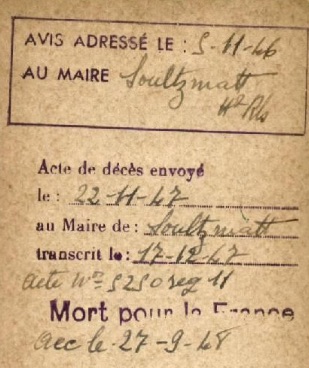 AVIS ADRESSÉ LE : 5-11-46
AU MAIRE Soultzmatt
Ht Rh
Acte de décès envoyé
le : 22-11-47
au Maire de : Soultzmatt
transcrit le : 17-12-47
acte n° 5250 reg 11
Mort pour la France
acc le 27-9-48